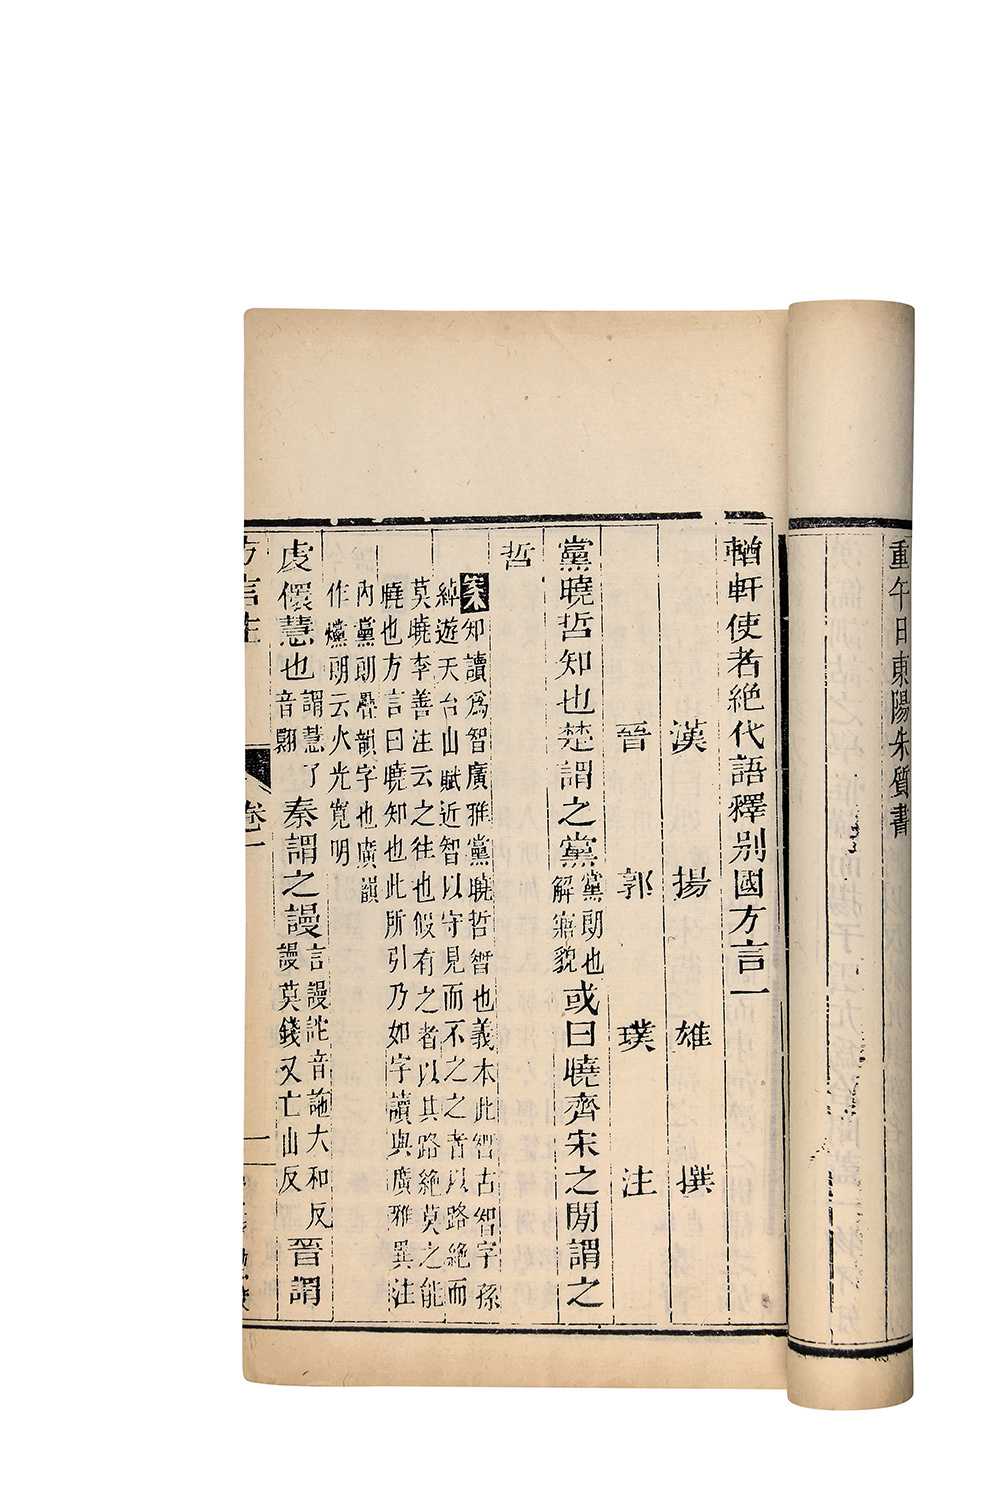 重午日東陽朱質書
輶軒使者絶代語釋别國方言一
漢 揚 雄 撰
晉 郭 璞 注
黨曉哲知也楚謂之黨黨朗也解寤貌或曰曉齊宋之閒謂之
哲
案知讀爲智廣雅黨曉哲𥏼也義本此𥏼古智字孫
綽遊天台山賦近智以守見而不之之者以路絶而
莫曉李善注云之往也假有之者以其路絶莫之能
曉也方言曰曉知也此所引乃如字讀與廣雅異注
內黨朗疊韻字也廣韻
作爣朗云火光寬明
虔儇慧也謂慧了音翾秦謂之謾言謾詑音詑大和反謾莫錢又亡山反晉謂
方言注 卷一 一